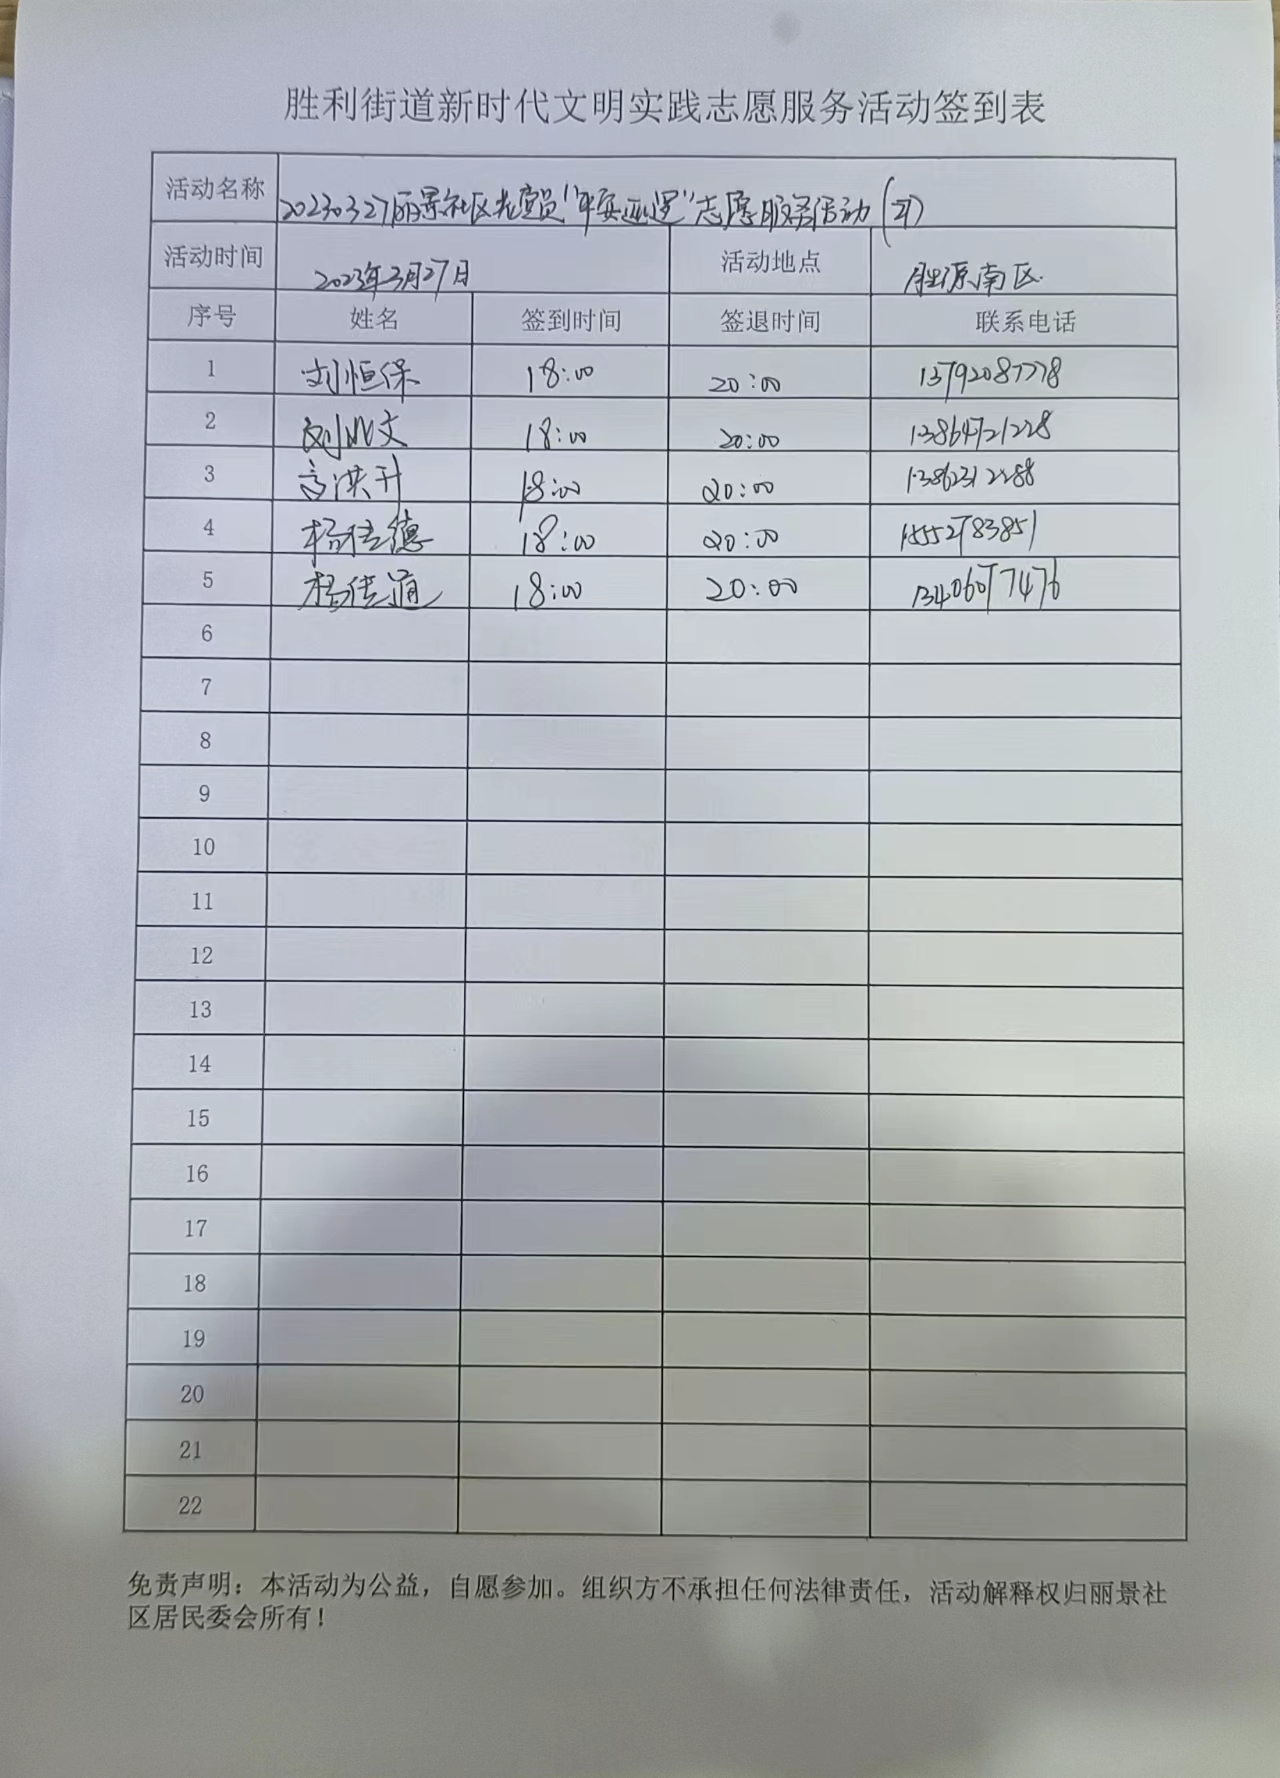 胜利街道新时代文明实践志愿服务活动签到表
活动名称 20230327丽景社区老党员"平安巡逻"志愿服务活动
活动时间 2023年3月27日 活动地点 胜原南区
序号 姓名 签到时间 签退时间 联系电话
1 刘恒保 18:00 20:00 13792087778
2 刘兆文 18:00 20:00 13864721228
3 高洪升 18:00 20:00 13862312288
4 杨佳德 18:00 20:00 15552783851
5 杨佳通 18:00 20:00 13406077476
6
7
8
9
10
11
12
13
14
15
16
17
18
19
20
21
22
免责声明：本活动为公益，自愿参加。组织方不承担任何法律责任，活动解释权归丽景社
区居民委会所有！